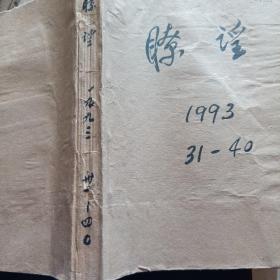 瞭望
1993
31-40
瞭望
一九九三
卅一-四〇